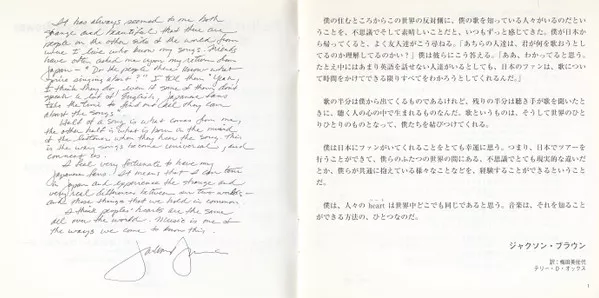 It has always seemed to me both
strange and beautiful that there are
people on the other side of the world from
where I live who know my songs. Friends
have often asked me upon my return from
Japan - "Do the people there know what
you're singing about?" I tell them "Yeah
I think they do, even if some of them don't
speak a lot of English, Japanese fans
take the time to find out all they can
about the songs."
Half of a song is what comes from me,
the other half is what is born in the mind
of the listener when they hear the song. This
is the way songs become universal, and
connect us.
I feel very fortunate to have my
Japanese fans. It means that I can tour
in Japan and experience the strange and
very real differences between our two worlds -
and those things that we hold in common.
I think peoples' hearts are the same
all over the world. Music is one of
the ways we come to know this.
僕の住むところからこの世界の反対側に、僕の歌を知っている人々がいるのだとい
うことを、不思議でそして素晴しいことだと、いつもずっと感じてきた。僕が日本か
ら帰ってくると、よく友人達がこう尋ねる。「あちらの人達は、君が何を歌おうとし
てるのか理解してるのかい？」僕は彼らにこう答える。「ああ、わかってると思う。
たとえ中にはあまり英語を話せない人達がいるとしても、日本のファンは、歌につい
て時間をかけてできる限りすべてをわかろうとしてくれるんだ。」
歌の半分は僕から出てくるものであるけれど、残りの半分は聴き手が歌を聞いたと
きに、聴く人の心の中で生まれるものなんだ。歌というものは、そうして世界のひと
りひとりのものとなって、僕たちを結びつけてくれる。
僕は日本にファンがいてくれることをとても幸運に思う。つまり、日本でツアーを
行うことができて、僕らのふたつの世界の間にある、不思議でとても現実的な違いだ
とか、僕らが共通に抱えている様々なことなどを、経験することができるということ
だ。
僕は、人々の heart は世界中どこでも同じであると思う。音楽は、それを知ること
ができる方法の、ひとつなのだ。
ジャクソン・ブラウン
訳：梅田美佐代
テリー・D・オックス
1